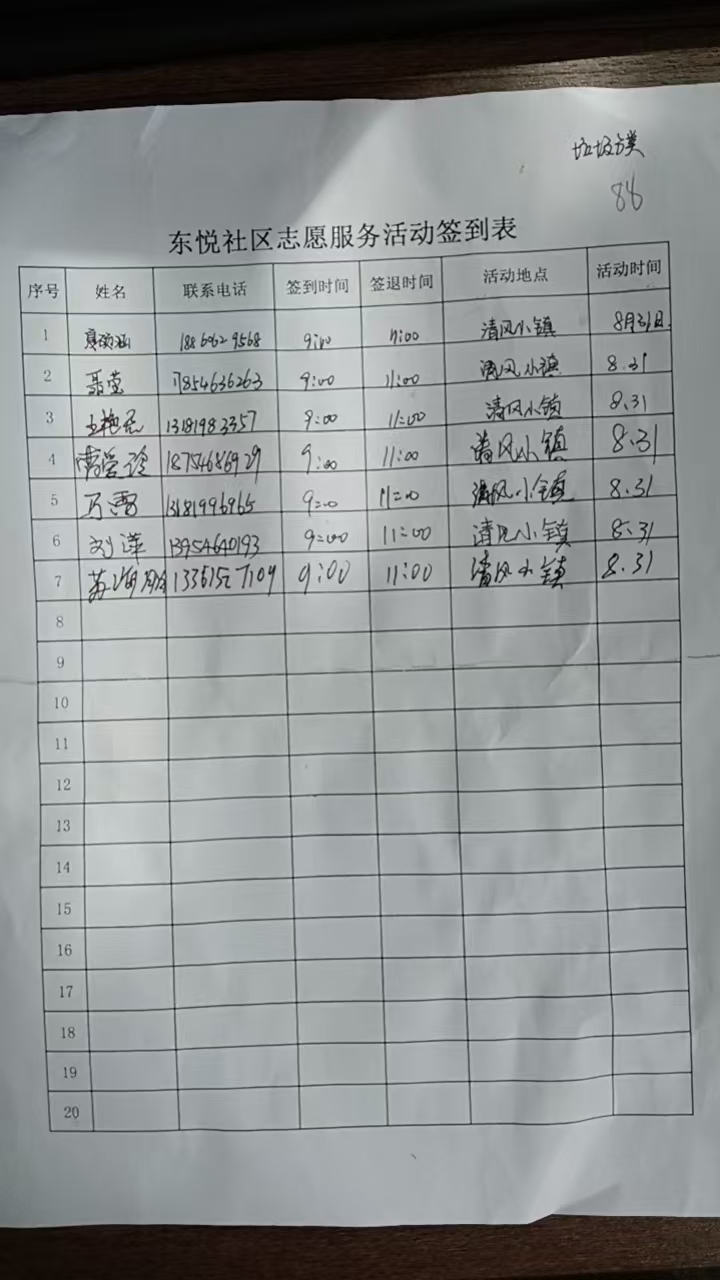 垃圾分类
88
东悦社区志愿服务活动签到表
序号 姓名 联系电话 签到时间 签退时间 活动地点 活动时间
1 9:00 11:00 清风小镇 8月31日
2 聂莹 17854636263 9:00 11:00 清风小镇 8.31
3 13181983357 9:00 11:00 清风小镇 8.31
4 18754686929 9:00 11:00 清风小镇 8.31
5 万雪 13181996965 9:00 11:00 清风小镇 8.31
6 刘萍 13954640193 9:00 11:00 清风小镇 8.31
7 9:00 11:00 清风小镇 8.31
8
9
10
11
12
13
14
15
16
17
18
19
20